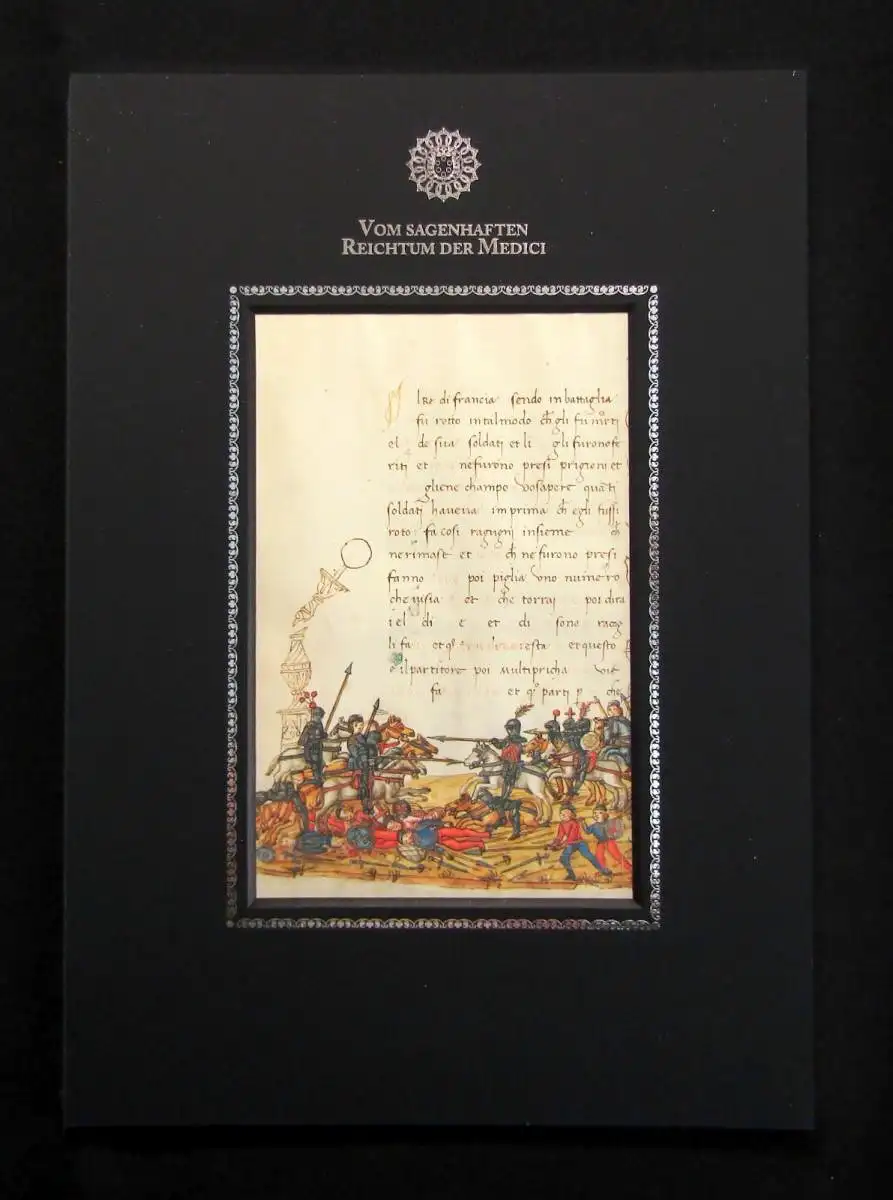 VOM SAGENHAFTEN
REICHTUM DER MEDICI
l Re di francia sendo in battaglia
fu rotto intalmodo ch gli fu morti
el de sua soldati et li gli furono fe
riti et ne furono presi prigioni et
gliene champo vo sapere quati
soldati haveva imprima ch egli fussi
roto fa cosi ragugni insieme ch
ne rimast et ch ne furono presi
fanno poi piglia uno numero
che et che torrai poi dira
i el di e et di sono racog
li fa et resta et questo
e il partitore poi multipricha
fa et parti p che